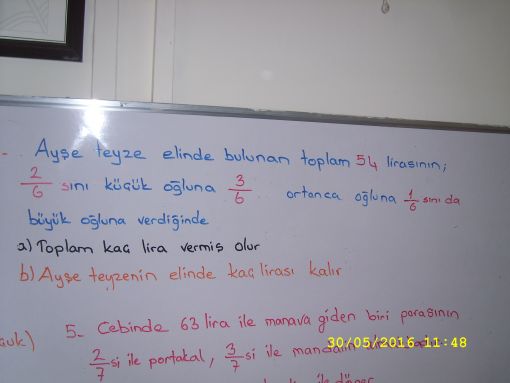 - Ayşe teyze elinde bulunan toplam 54 lirasının;
2/6 sını küçük oğluna 3/6 ortanca oğluna 1/6 sını da
büyük oğluna verdiğinde
a) Toplam kaç lira vermiş olur
b) Ayşe teyzenin elinde kaç lirası kalır
5- Cebinde 63 lira ile manava giden biri parasının
2/7 si ile portakal, 3/7 si ile mandalin
30/05/2016 11:48
ile